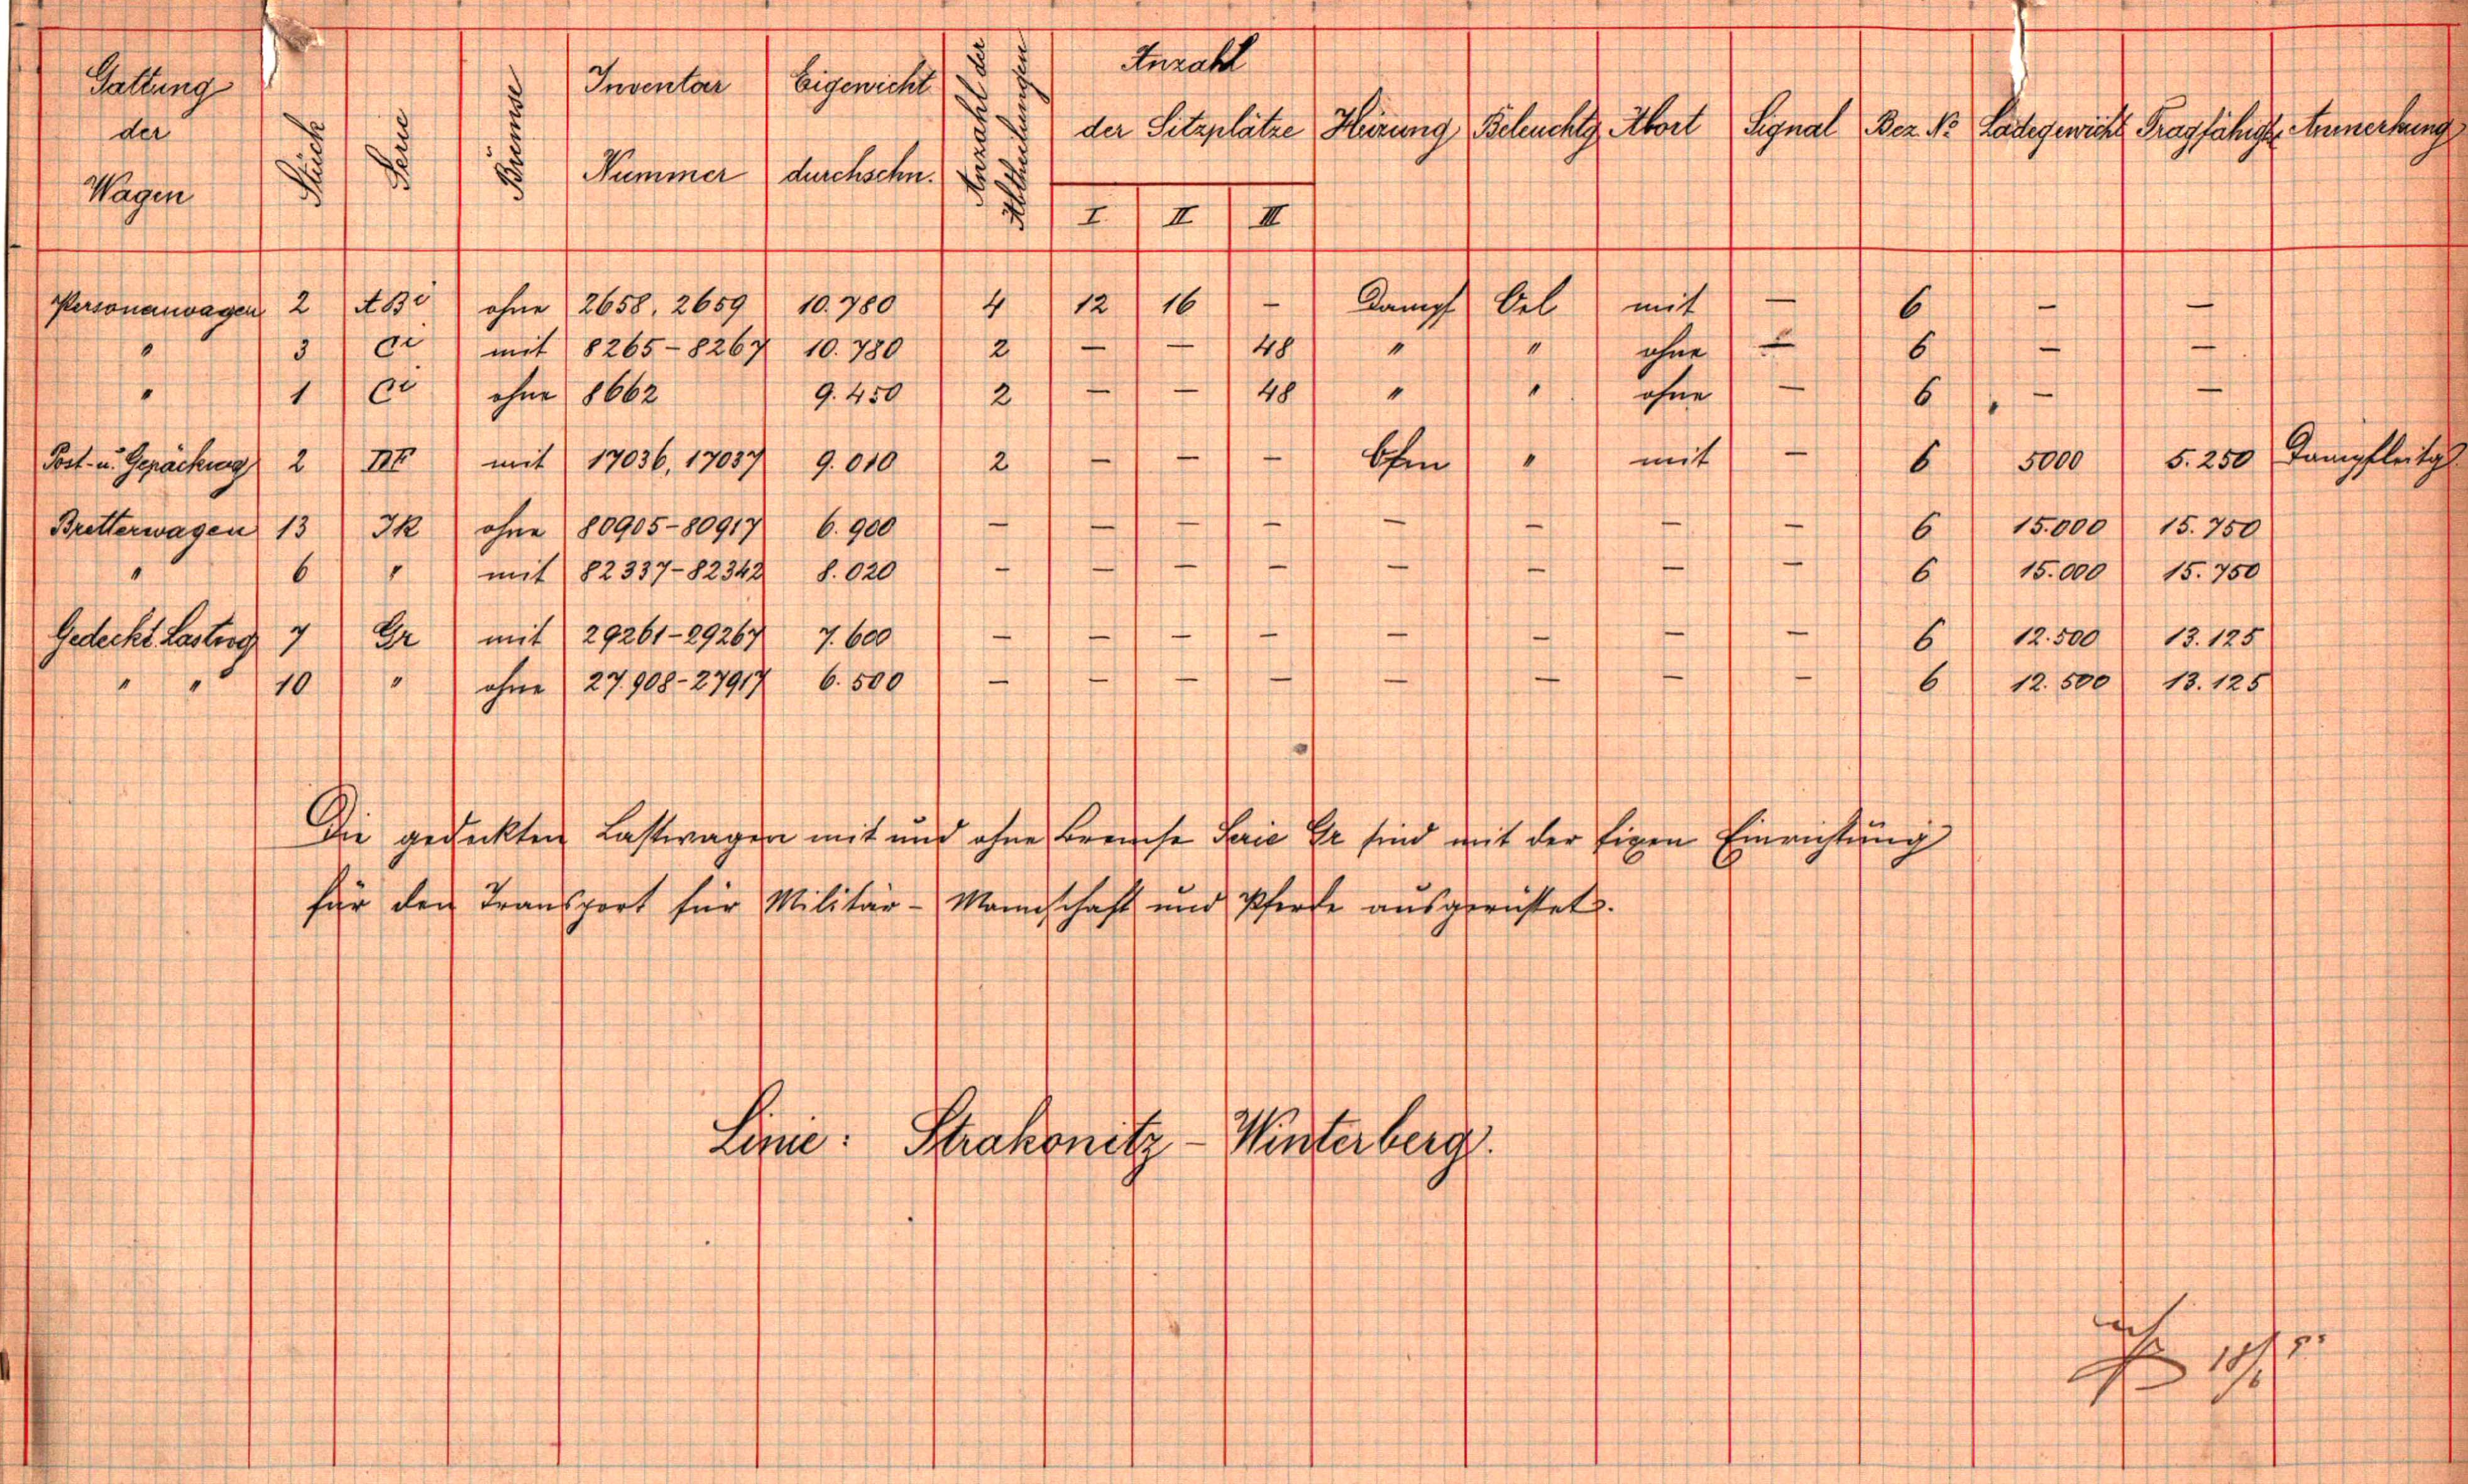 Gattung der Wagen | Stück | Serie | Bremse | Inventar Nummer | Eigewicht durchschn. | Anzahl der Abtheilungen | Anzahl der Sitzplätze I II III | Heizung | Beleuchtg | Abort | Signal | Bez. № | Ladegewicht | Tragfähigk. | Anmerkung
Personenwagen 2 ABi ohne 2658, 2659 10.780 4 12 16 – Dampf Oel mit – 6 – –
" 3 Ci mit 8265-8267 10.780 2 – – 48 " " ohne – 6 – –
" 1 Ci ohne 8662 9.450 2 – – 48 " " ohne – 6 – –
Post- u. Gepäckwag 2 DF mit 17036, 17037 9.010 2 – – – Ofen " mit – 6 5000 5.250 Dampfleitg.
Bretterwagen 13 JK ohne 80905-80917 6.900 – – – – – – – – 6 15.000 15.750
" 6 " mit 82337-82342 8.020 – – – – – – – – 6 15.000 15.750
Gedeckt. Lastwg 7 Gr mit 29261-29267 7.600 – – – – – – – – 6 12.500 13.125
" " 10 " ohne 27.908-27917 6.500 – – – – – – – – 6 12.500 13.125
Die gedeckten Lastwagen mit und ohne Bremse Serie Gr sind mit der fixen Einrichtung
für den Transport für Militär- Mannschaft und Pferde ausgerüstet.
Linie: Strakonitz - Winterberg.